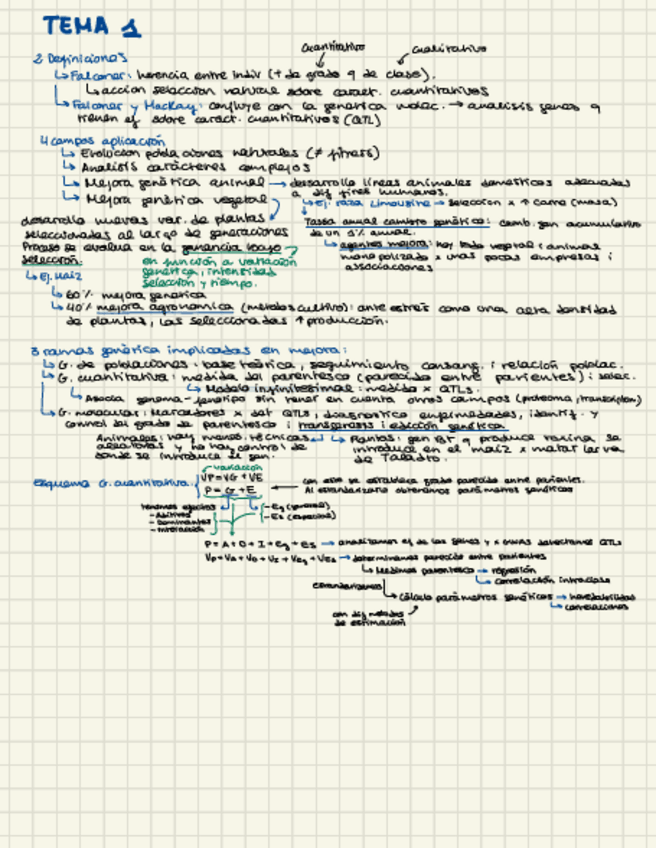 TEMA 1
Cuantitativo
Cualitativo
2 Definiciones
Falconer: herencia entre indiv (+ de grado q de clase).
acción selección natural sobre caract. cuantitativos
Falconer y Mackay: confluye con la genética molec. → analisis genes q
tienen ef sobre caract. cuantitativos (QTL)
4 campos aplicación
Evolución poblaciones naturales (≠ fitness)
Analisis caracteres complejos
Mejora genética animal → desarrollo líneas animales domésticos adecuadas
a dif fines humanos.
Mejora genética vegetal
Ej. raza Limousine → selección x ↑ carne (masa)
desarrollo nuevas var. de plantas
seleccionadas al largo de generaciones
Tasa anual cambio genético: camb. gen acumulativo
de un 2% anual.
Proceso se evalua en la ganancia bajo
selección:
en función a variación
genética, intensidad
selección y tiempo.
agentes mejora: hoy todo vegetal i animal
monopolizado x unas pocas empresas i
associaciones
Ej. Maíz
60% mejora genética
40% mejora agronómica (métodos cultivo): ante estrés como una alta densidad
de plantas, las seleccionadas ↑ producción.
3 ramas genética implicadas en mejora:
G. de poblaciones: base teórica, seguimiento consang. i relación poblac.
G. cuantitativa: medida del parentesco (parecido entre parientes) i selec.
Modelo infinitesimal: medida x QTLs.
Asocia genoma-fenotipo sin tener en cuenta otros campos (proteoma, transcripton)
G. molecular: Marcadores x det QTLs, diagnostico enfermedades, identif. y
control del grado de parentesco i transgenesis i edición genética
Animales: hay menos técnicas
aleatorias y no hay control de
donde se introduce el gen.
Plantas: gen Bt q produce toxina se
introduce en el maíz x matar larva
de Taladro.
variación
Esquema G. cuantitativa.
VP = VG + VE
P = G + E
con esto se establece grado parecido entre parientes.
Al estandarizarlo obtenemos parámetros genéticos
tenemos efectos
- Aditivos
- Dominantes
- Interacción
- Eg (general)
- Es (especial)
P = A + D + I + Eg + Es → analizamos ef de los genes y x otras detectamos QTLs
Vp = VA + VD + VI + VEg + VEs → determinamos parecido entre parientes
Medimos parentesco → regresión
correlación intraclase
estandarizamos
Cálculo parámetros genéticos → heredabilidades
correlaciones
con dif métodos
de estimación